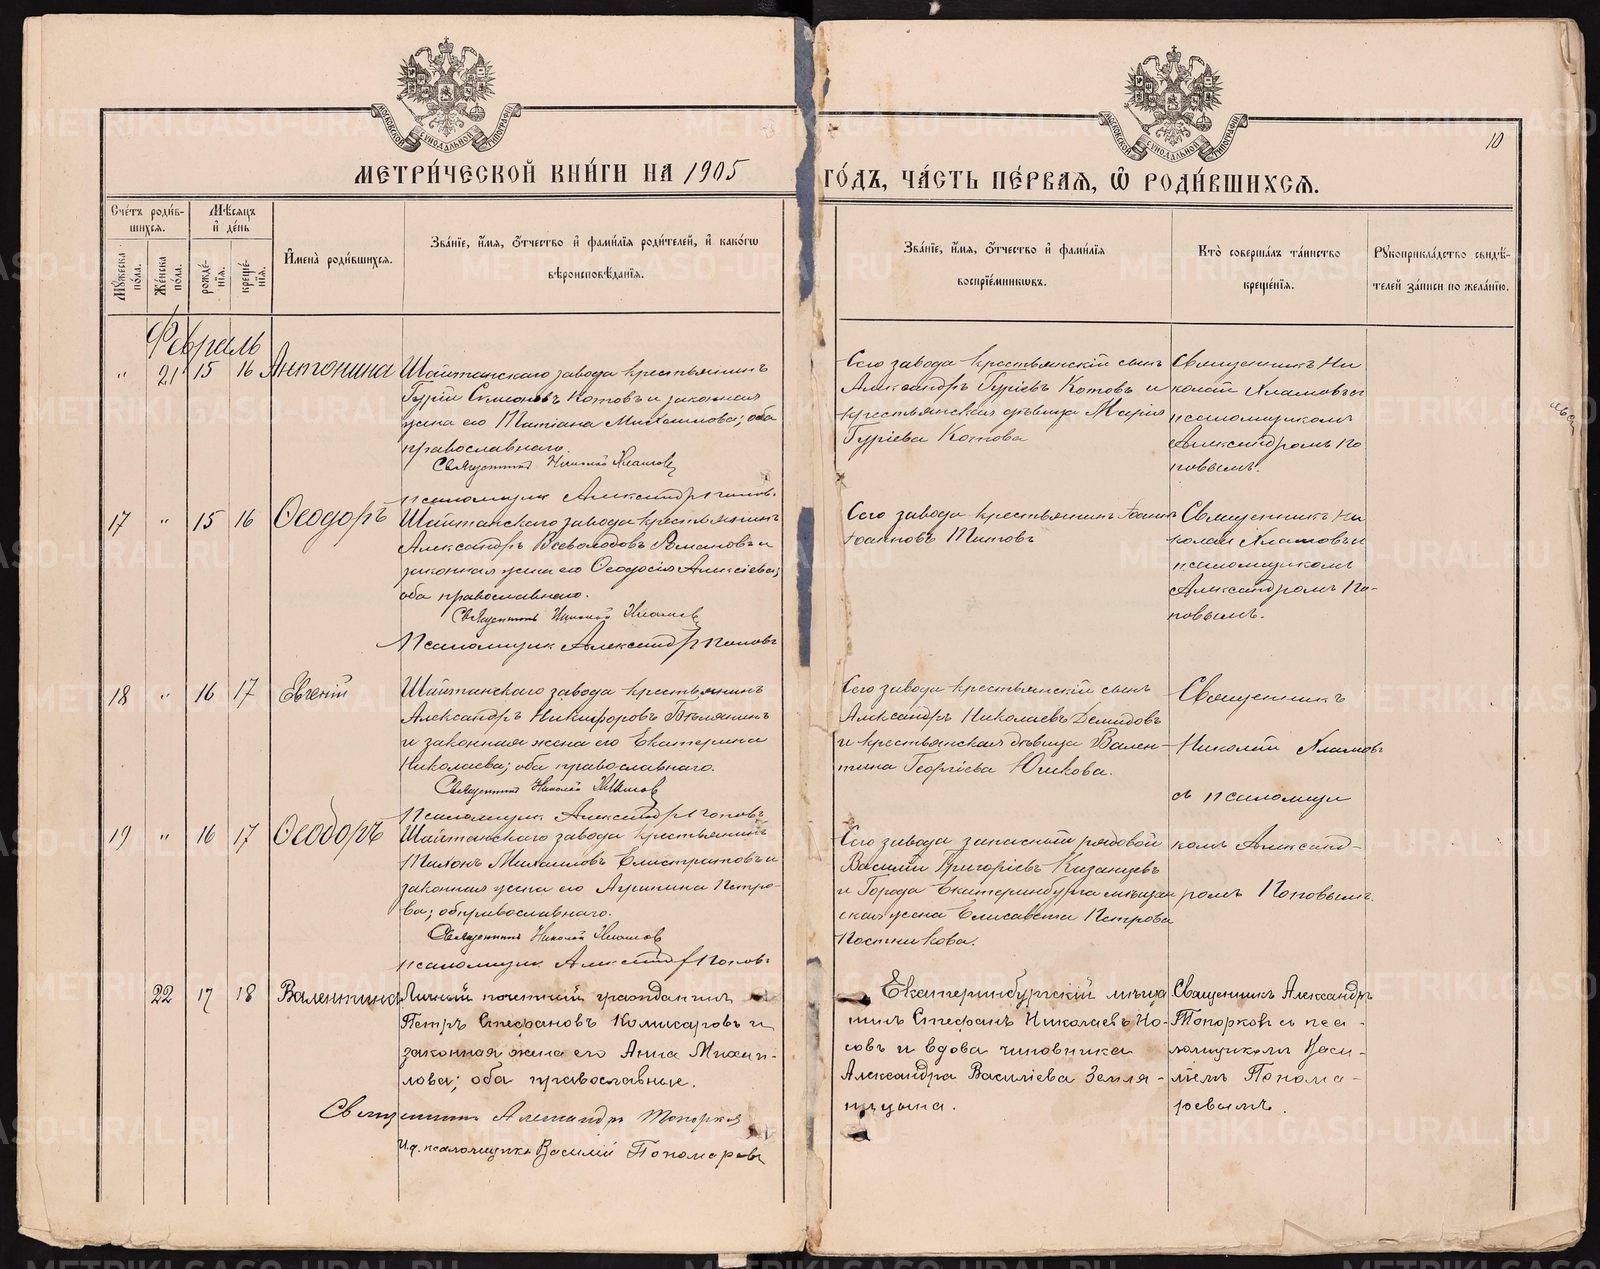 МОСКОВСКОЙ СѴНОДАЛЬНОЙ ТИПОГРАФІИ
МОСКОВСКОЙ СѴНОДАЛЬНОЙ ТИПОГРАФІИ
10
МЕТРИ́ЧЕСКОЙ КНИ́ГИ НА 1905
ГО́ДЪ, ЧА́СТЬ ПЕ́РВАЯ, Ѡ҆ РОДИ́ВШИХСЯ.
Сче́тъ роди́в-
шихся.
Мѣ́сяцъ
и҆ де́нь
Мꙋжеска
пола.
Же́нска
по́ла.
рожде́-
нїѧ.
креще́-
нїѧ.
И҆мена̀ роди́вшихся.
Зва́нїе, и҆́мя, ѻ҆́тчество и҆ фами́лїя роди́телей, и҆ како́гѡ
вѣроисповѣ́данїя.
Зва́нїе, и҆́мя, ѻ҆́тчество и҆ фами́лїя
воспрїе́мникѡвъ.
Кто̀ соверша́лъ та́инство
креще́нїя.
Рꙋкоприкла́дство свидѣ́-
телей за́писи по жела́нїю.
Февраль
" 21 15 16 Антонина
Шайтанскаго завода крестьянинъ
Гурій Симоновъ Котовъ и законная
жена его Татіана Михаилова; оба
православнаго.
Священникъ Николай Хламовъ
псаломщик Александръ Попов.
Сего завода крестьянскій сынъ
Александръ Гуріевъ Котовъ и
крестьянская дѣвица Марія
Гуріева Котова
Священникъ Ни
колай Хламовъ с
псаломщикомъ
Александромъ По
повымъ.
17 " 15 16 Ѳеодоръ
Шайтанскаго завода крестьянинъ
Александръ Всеволодовъ Романовъ и
законная жена его Ѳеодосія Алексіева;
оба православнаго.
Священникъ Николай Хламовъ
Псаломщик Александръ Поповъ
Сего завода крестьянинъ Іоаннъ
Іоанновъ Титовъ
Священникъ Ни
колай Хламовъ и
псаломщикомъ
Александромъ По-
повымъ.
18 " 16 17 Евгеній
Шайтанскаго завода крестьянинъ
Александръ Никифоровъ Бѣлянинъ
и законная жена его Екатерина
Николаева; оба православнаго.
Священникъ Николай Хламовъ
Псаломщик Александръ Поповъ
Сего завода крестьянскій сынъ
Александръ Николаевъ Демидовъ
и крестьянская дѣвица Вален-
тина Георгіева Юшкова.
Священникъ
Николай Хламовъ
съ псаломщи
19 " 16 17 Ѳеодоръ
Шайтанскаго завода крестьянинъ
Тихонъ Михаиловъ Елистратовъ и
законная жена его Агрипина Петро-
ва; оба православнаго.
Священникъ Николай Хламовъ
псаломщик Александръ Поповъ
Сего завода запасный рядовой
Василій Григоріевъ Казанцевъ
и Города Екатеринбурга мѣщан
ская жена Елисавета Петрова
Постникова.
комъ Александ-
ромъ Поповымъ.
22 17 18 Валентина
Личный почетный гражданинъ
Петръ Стефановъ Комисаровъ и
законная жена его Анна Михаи-
лова; оба православные.
Священникъ Александръ Топорковъ
И.д. псаломщика Василій Пономаревъ
Екатеринбургскій мѣща
нинъ Стефанъ Николаевъ Но-
совъ и вдова чиновника
Александра Василіева Земля-
ницына.
Священникъ Александръ
Топорковъ съ пса-
ломщикомъ Васи-
ліемъ Понома-
ревымъ.